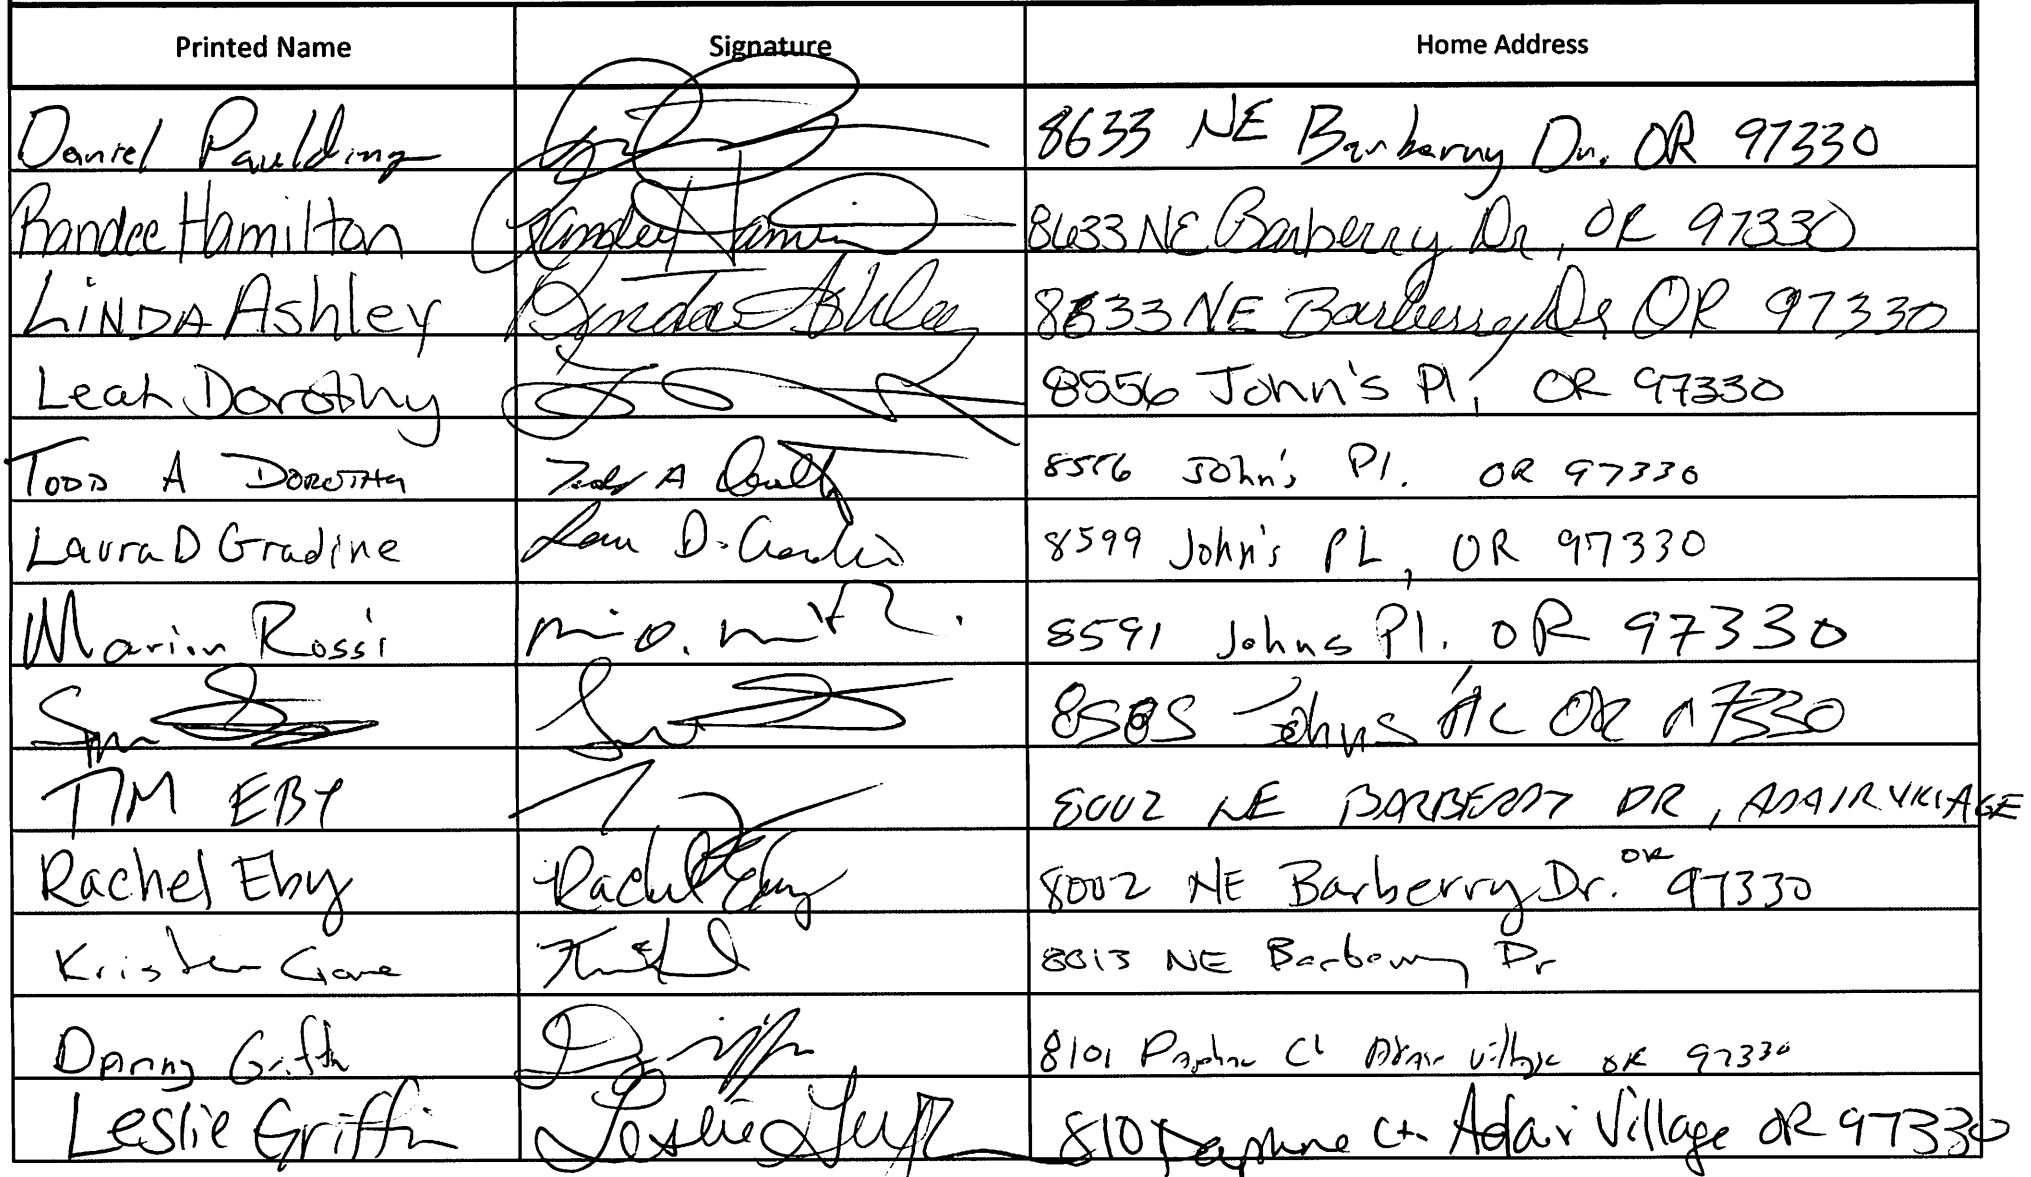 Printed Name Signature Home Address
Daniel Paulding 8633 NE Barberry Dr. OR 97330
Randee Hamilton Randee Hamilton 8633 NE Barberry Dr, OR 97330
LINDA Ashley Linda Ashley 8633 NE Barberry Dr OR 97330
Leah Dorothy 8556 John's Pl, OR 97330
TODD A DOROTHY Todd A Dorothy 8556 John's Pl. OR 97330
Laura D Gradine Laura D. Gradine 8599 John's PL, OR 97330
Marion Rossi 8591 Johns Pl. OR 97330
8585 Johns OR 97330
TIM EBY 8002 NE BARBERRY DR, ADAIR VILLAGE
Rachel Eby Rachel Eby 8002 NE Barberry Dr. OR 97330
Kristen 8013 NE Barberry Dr
Danny Griffin 8101 Daphne Ct Adair Village OR 97330
Leslie Griffin Leslie Griffin 8101 Daphne Ct. Adair Village OR 97330